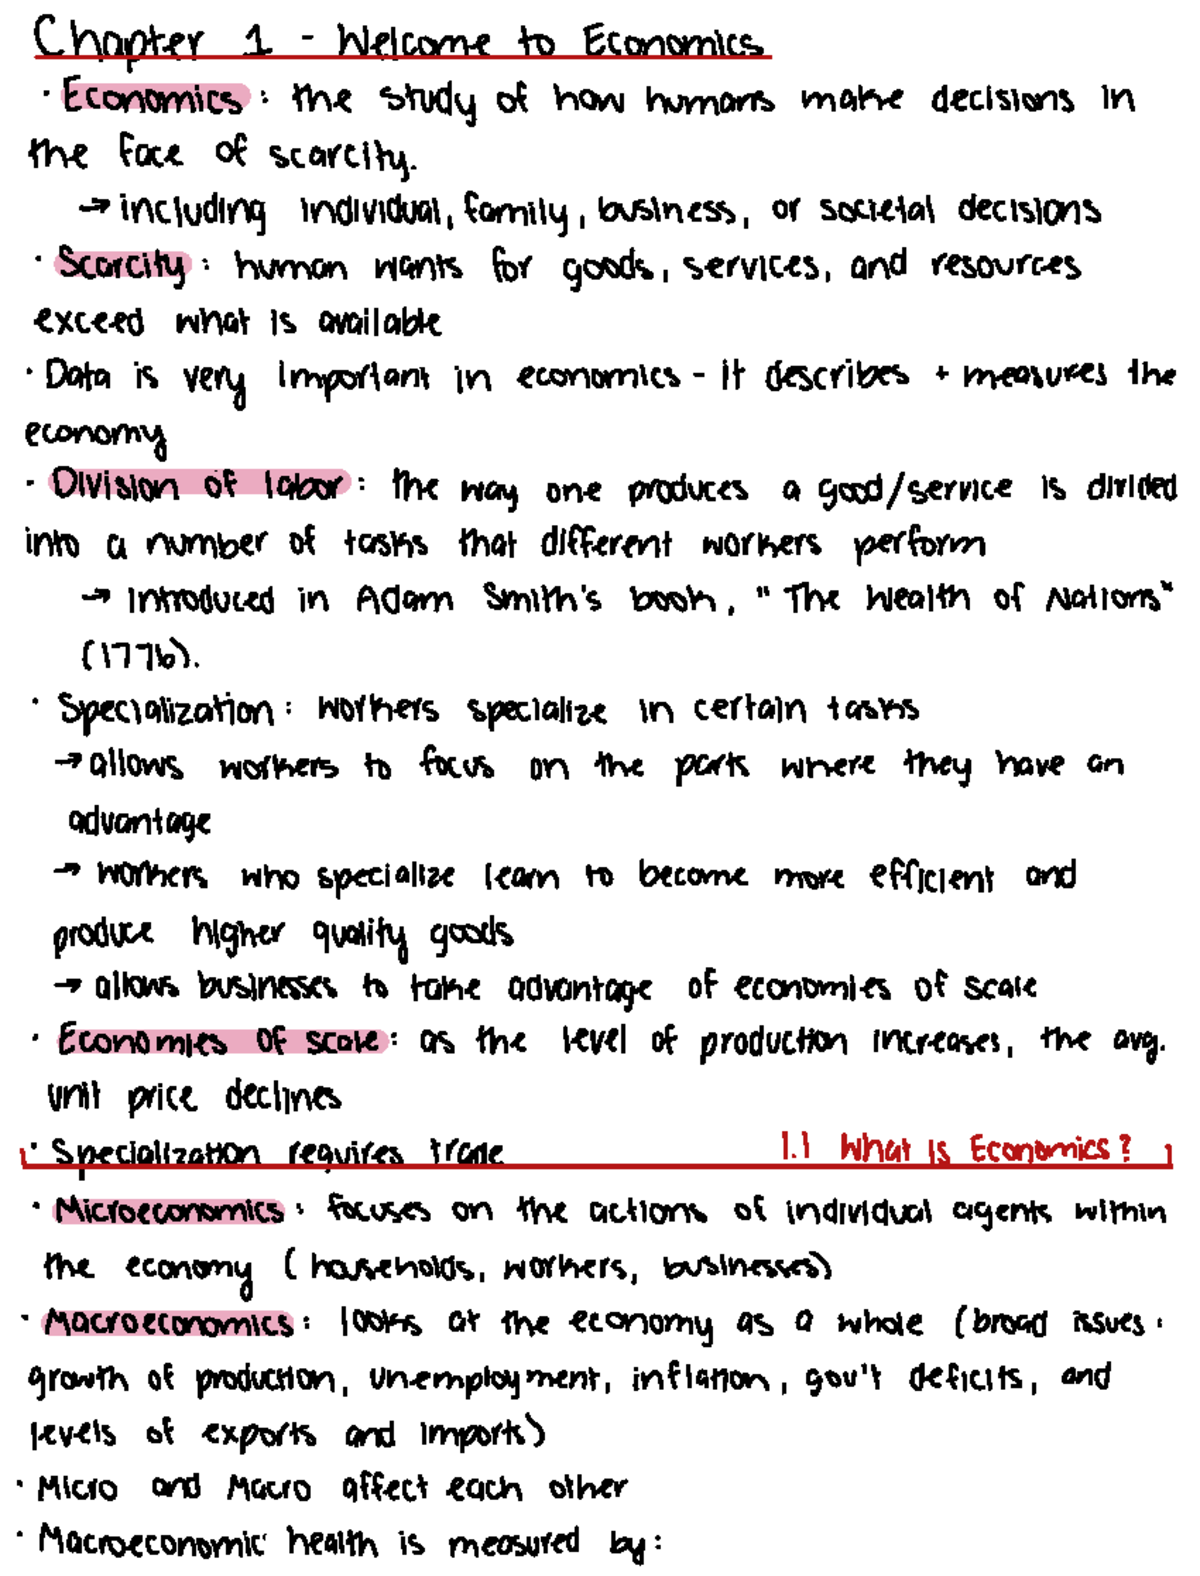 Chapter 1 - Welcome to Economics
· Economics: the study of how humans make decisions in
the face of scarcity.
→ including individual, family, business, or societal decisions
· Scarcity: human wants for goods, services, and resources
exceed what is available
· Data is very important in economics - it describes + measures the
economy
- Division of labor: the way one produces a good/service is divided
into a number of tasks that different workers perform
→ introduced in Adam Smith's book, "The Wealth of Nations"
(1776).
· Specialization: workers specialize in certain tasks
→ allows workers to focus on the parts where they have an
advantage
→ workers who specialize learn to become more efficient and
produce higher quality goods
→ allows businesses to take advantage of economies of scale
· Economies of scale: as the level of production increases, the avg.
unit price declines
· Specialization requires trade 1.1 What is Economics?
· Microeconomics: focuses on the actions of individual agents within
the economy (households, workers, businesses)
· Macroeconomics: looks at the economy as a whole (broad issues:
growth of production, unemployment, inflation, gov't deficits, and
levels of exports and imports)
· Micro and Macro affect each other
· Macroeconomic health is measured by: